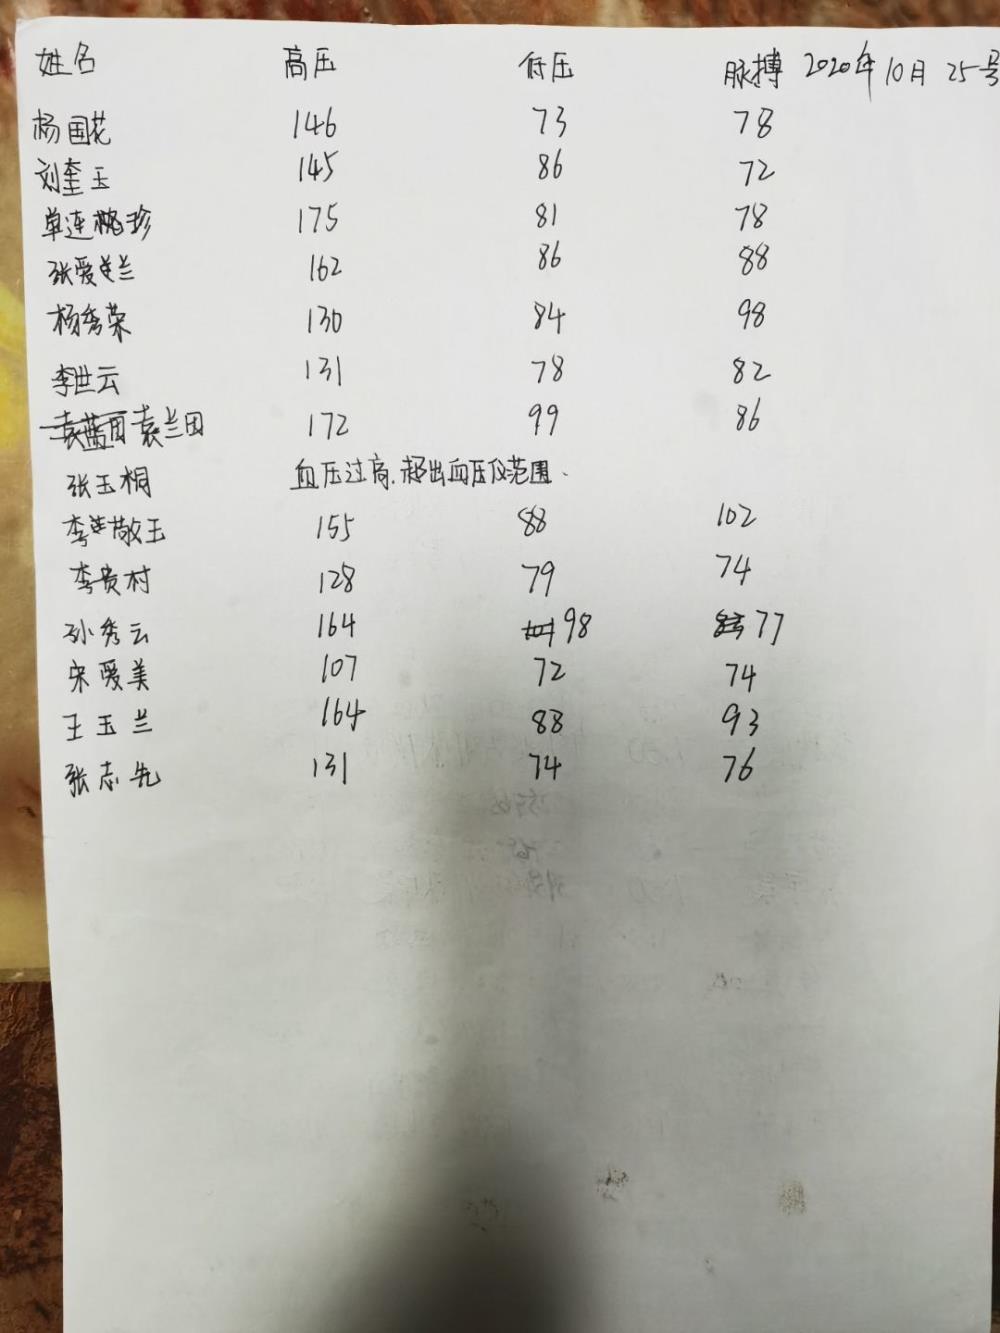 姓名 高压 低压 脉搏 2020年10月25号
杨国花 146 73 78
刘奎玉 145 86 72
单连桃珍 175 81 78
张爱兰 162 86 88
杨秀荣 130 84 98
李世云 131 78 82
袁兰田 172 99 86
张玉桐 血压过高.超出血压仪范围.
李敬玉 155 88 102
李贵村 128 79 74
孙秀云 164 98 77
宋爱美 107 72 74
王玉兰 164 88 93
张志先 131 74 76